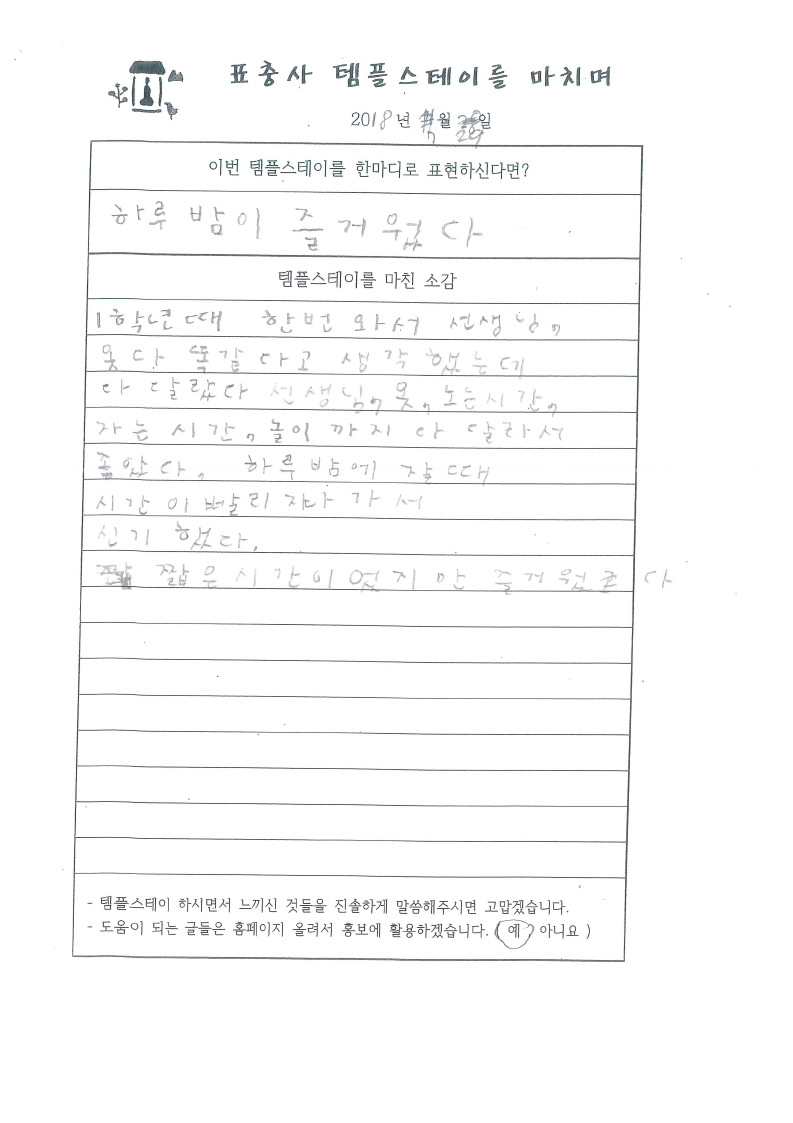 표충사 템플스테이를 마치며
2018년 7월 29일
이번 템플스테이를 한마디로 표현하신다면?
하루밤이 즐거웠다
템플스테이를 마친 소감
1학년때 한번 와서 선생님,
옷 다 똑같 다고 생각 했는데
다 달랐다 선생님, 옷, 노는시간,
자는 시간, 놀이 까지 다 달라서
좋았다, 하루밤에 잘때
시간이 빨리 지나 가서
신기 했다.
짧은 시간이었지만 즐거웠다
- 템플스테이 하시면서 느끼신 것들을 진솔하게 말씀해주시면 고맙겠습니다.
- 도움이 되는 글들은 홈페이지 올려서 홍보에 활용하겠습니다. ( 예, 아니요 )